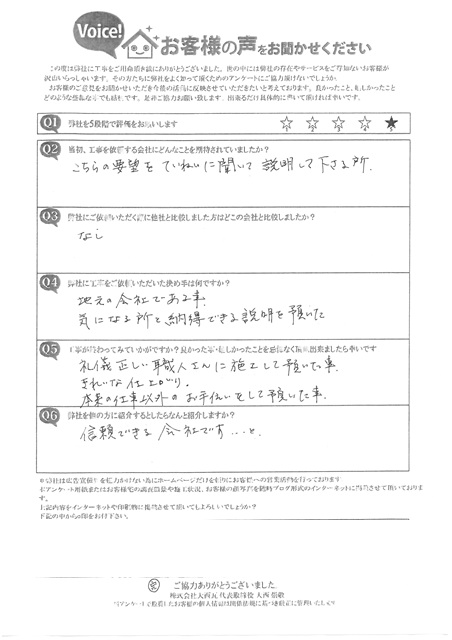 Voice!
お客様の声をお聞かせください
この度は弊社に工事をご用命頂き誠にありがとうございました。世の中には弊社の存在やサービスをご存知ないお客様が
沢山いらっしゃいます。その方たちに弊社をよく知って頂くためのアンケートにご協力頂けないでしょうか。
お客様のご意見をお聞かせいただき今後の活動に反映させていただきたいと考えております。良かったこと、悪しかったこと
どのような些細な事でも結構です。是非ご協力お願い致します。出来るだけ具体的に書いて頂ければ幸いです。
Q1 弊社を5段階で評価をお願いします ☆ ☆ ☆ ☆ ★
Q2 最初、工事を依頼する会社にどんなことを期待されていましたか?
こちらの要望をていねいに聞いて説明して下さる所.
Q3 弊社にご依頼いただく前に他社と比較しました方はどこの会社と比較しましたか?
なし
Q4 弊社に工事をご依頼いただいた決め手は何ですか?
地元の会社である事.
気になる所と納得できる説明を頂いた
Q5 工事が終わってみていかがですか?良かった事・悪しかったことを忌憚なくご記載出来ましたら幸いです
礼儀正しい職人さんに施工して頂いた事.
きれいな仕上がり.
本来の仕事以外のお手伝いをして頂いた事.
Q6 弊社を他の方に紹介するとしたらなんと紹介しますか?
信頼できる会社です…と.
※弊社は広告宣伝を協力かけない為にホームページだけを頼りにお客様への営業活動を行っております
す。
上記内容をインターネットや印刷物に掲載させて頂いてもよろしいでしょうか?
下記の中から○印をお付け下さい。
ご協力ありがとうございました
株式会社大西瓦 代表取締役 大西